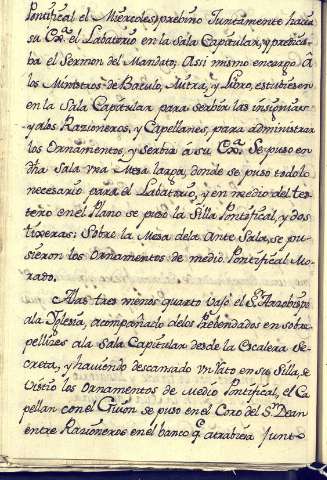 Pontifical el Miercoles, prebino Juntamente hacia
su Exª. el Labatorio en la Sala Capitular, y predica
ba el Sermon del Mandato; Asi mismo encargò â
los Ministros de Baculo, Mitra, y Libro, estubiesen
en la Sala Capitular para serbir las insignias
y alos Razioneros, y Capellanes, para administrar
los Ornamentos, y serbir â su Exª. Se puso en
dħa Sala vna Mesa larga, donde se puso todo lo
necesario para el Labatorio, y en medio del tes-
tero en el Plano se puso la Silla Pontifical, y dos
tixeras; Sobre la Mesa dela Ante Sala, se pu-
sieron los Ornamentos de medio Pontifical Mo-
rado.
Alas tres menos quarto vajo el Sr. Arzobispo
ala Yglesia, acompañado delos Prebendados en sobre
pellizes ala Sala Capitular desde la Escalera Se-
creta, y haviendo descansado vn rato en su Silla, se
vistio los Ornamentos de Medio Pontifical, el Ca
pellan con el Guion se puso en el Coro del Sr. Dean
entre Razioneros en el banco q̃ atrabiesa Junt-